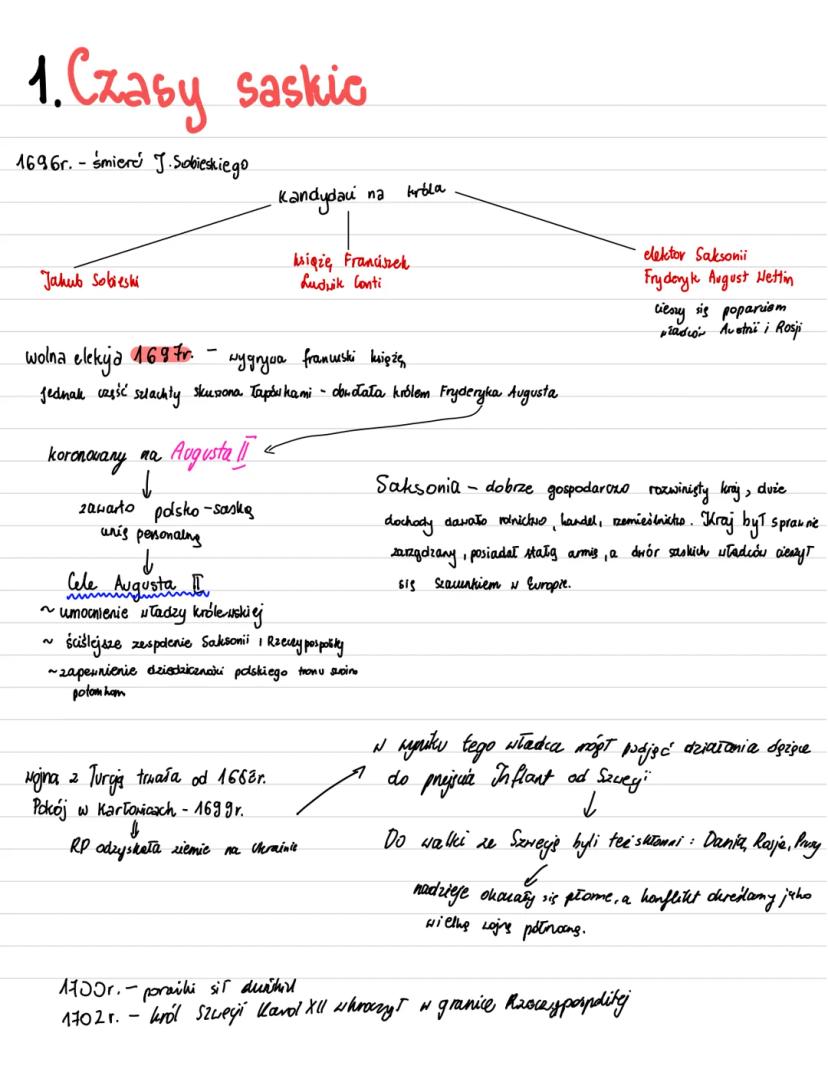 1. Czasy saskie
1696r. - śmierć J. Sobieskiego
Kandydaci na króla
Jakub Sobieski
książę Franciszek
Ludwik Conti
elektor Saksonii
Fryderyk August Wettin
cieszy się poparciem
władców Austrii i Rosji
wolna elekcja 1697r. - wygrywa francuski książę,
jednak część szlachty skuszona łapówkami - obwołała królem Fryderyka Augusta
koronowany na Augusta II
zawarto polsko-saską
unię personalną
Cele Augusta II
~ umocnienie władzy królewskiej
~ ściślejsze zespolenie Saksonii i Rzeczypospolitej
~ zapewnienie dziedziczności polskiego tronu swoim
potomkom
Saksonia - dobrze gospodarczo rozwinięty kraj, duże
dochody dawało rolnictwo, handel, rzemieślnictwo. Kraj był sprawnie
zarządzany, posiadał stałą armię, a dwór saskich władców cieszył
się szacunkiem w Europie.
Wojna z Turcją trwała od 1683r.
Pokój w Karłowicach - 1699r.
RP odzyskała ziemie na Ukrainie
W wyniku tego władca mógł podjąć działania dążące
do przejęcia Inflant od Szwecji
Do walki ze Szwecją byli też skłonni: Dania, Rosja, Prusy
nadzieje okazały się płonne, a konflikt określamy jako
wielką wojnę północną.
1700r. - porażki sił duńskich
1702r. - król Szwecji Karol XII wkroczył w granice Rzeczypospolitej